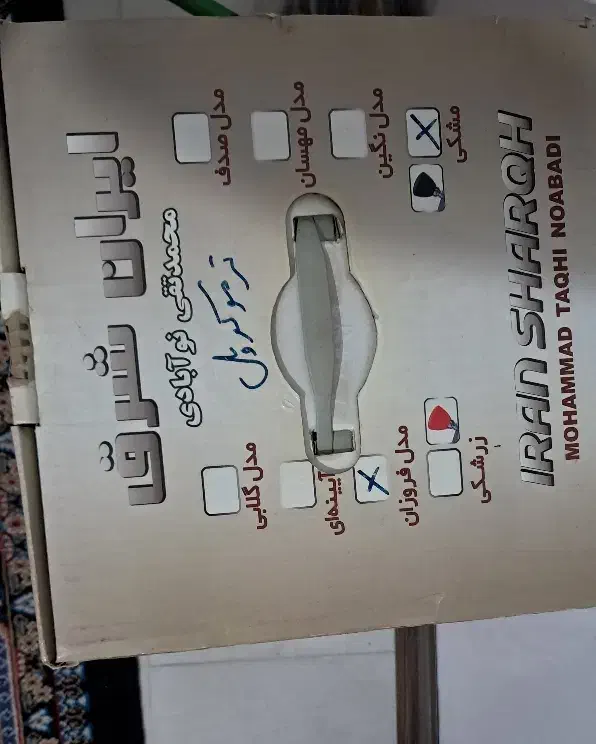 ایران شرق
محمدتقی نوآبادی
ترموکوپل
مدل صدف
مدل مهسان
مدل نگین
مشکی
مدل گلابی
آیینه‌ای
مدل فروزان
زرشکی
IRAN SHARQH
MOHAMMAD TAQHI NOABADI